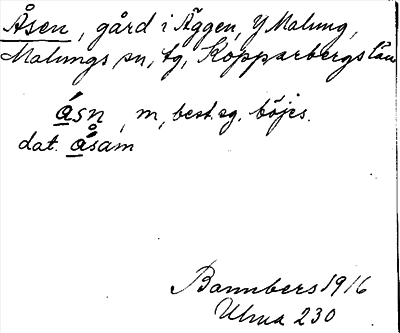 Åsen, gård i Äggen, Y Malung,
Malungs sn, tg, Kopparbergs län
åsn, m, best. sg. böjes.
dat. åsam
Bannbers 1916
Ulma 230